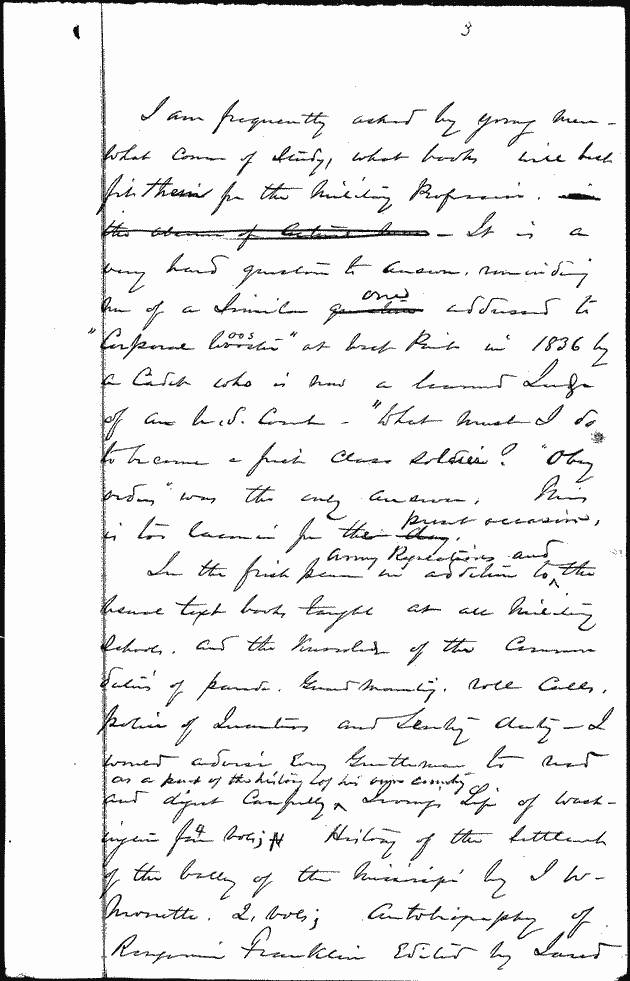 3
I am frequently asked by young men -
What course of Study, what books will best
fit them for the Military Profession. in
the absence of actual war - It is a
very hard question to answer, reminding
me of a similar question one addressed to
"Corporal " at West Point in 1836 by
a Cadet who is now a learned Judge
of an U.S. Court - "What must I do
to become a first class soldier? "Obey
orders" was the only answer. This
is too laconic for the day. present occasion.
Army Regulations and
In the first place in addition to ^ the
usual text books taught at all Military
Schools, and the Knowledge of the Common
duties of parade, Guard Mounting, roll Calls,
police of Quarters and Sentry duty - I
would advise Every Gentleman to read
as a part of the history of his own country
and digest Carefully ^ Irvings Life of Wash-
ington 4 Vols; History of the Settlement
of the Valley of the Mississipi by J W-
Monette. 2, Vols; Autobiography of
Benjamin Franklin Edited by Jared